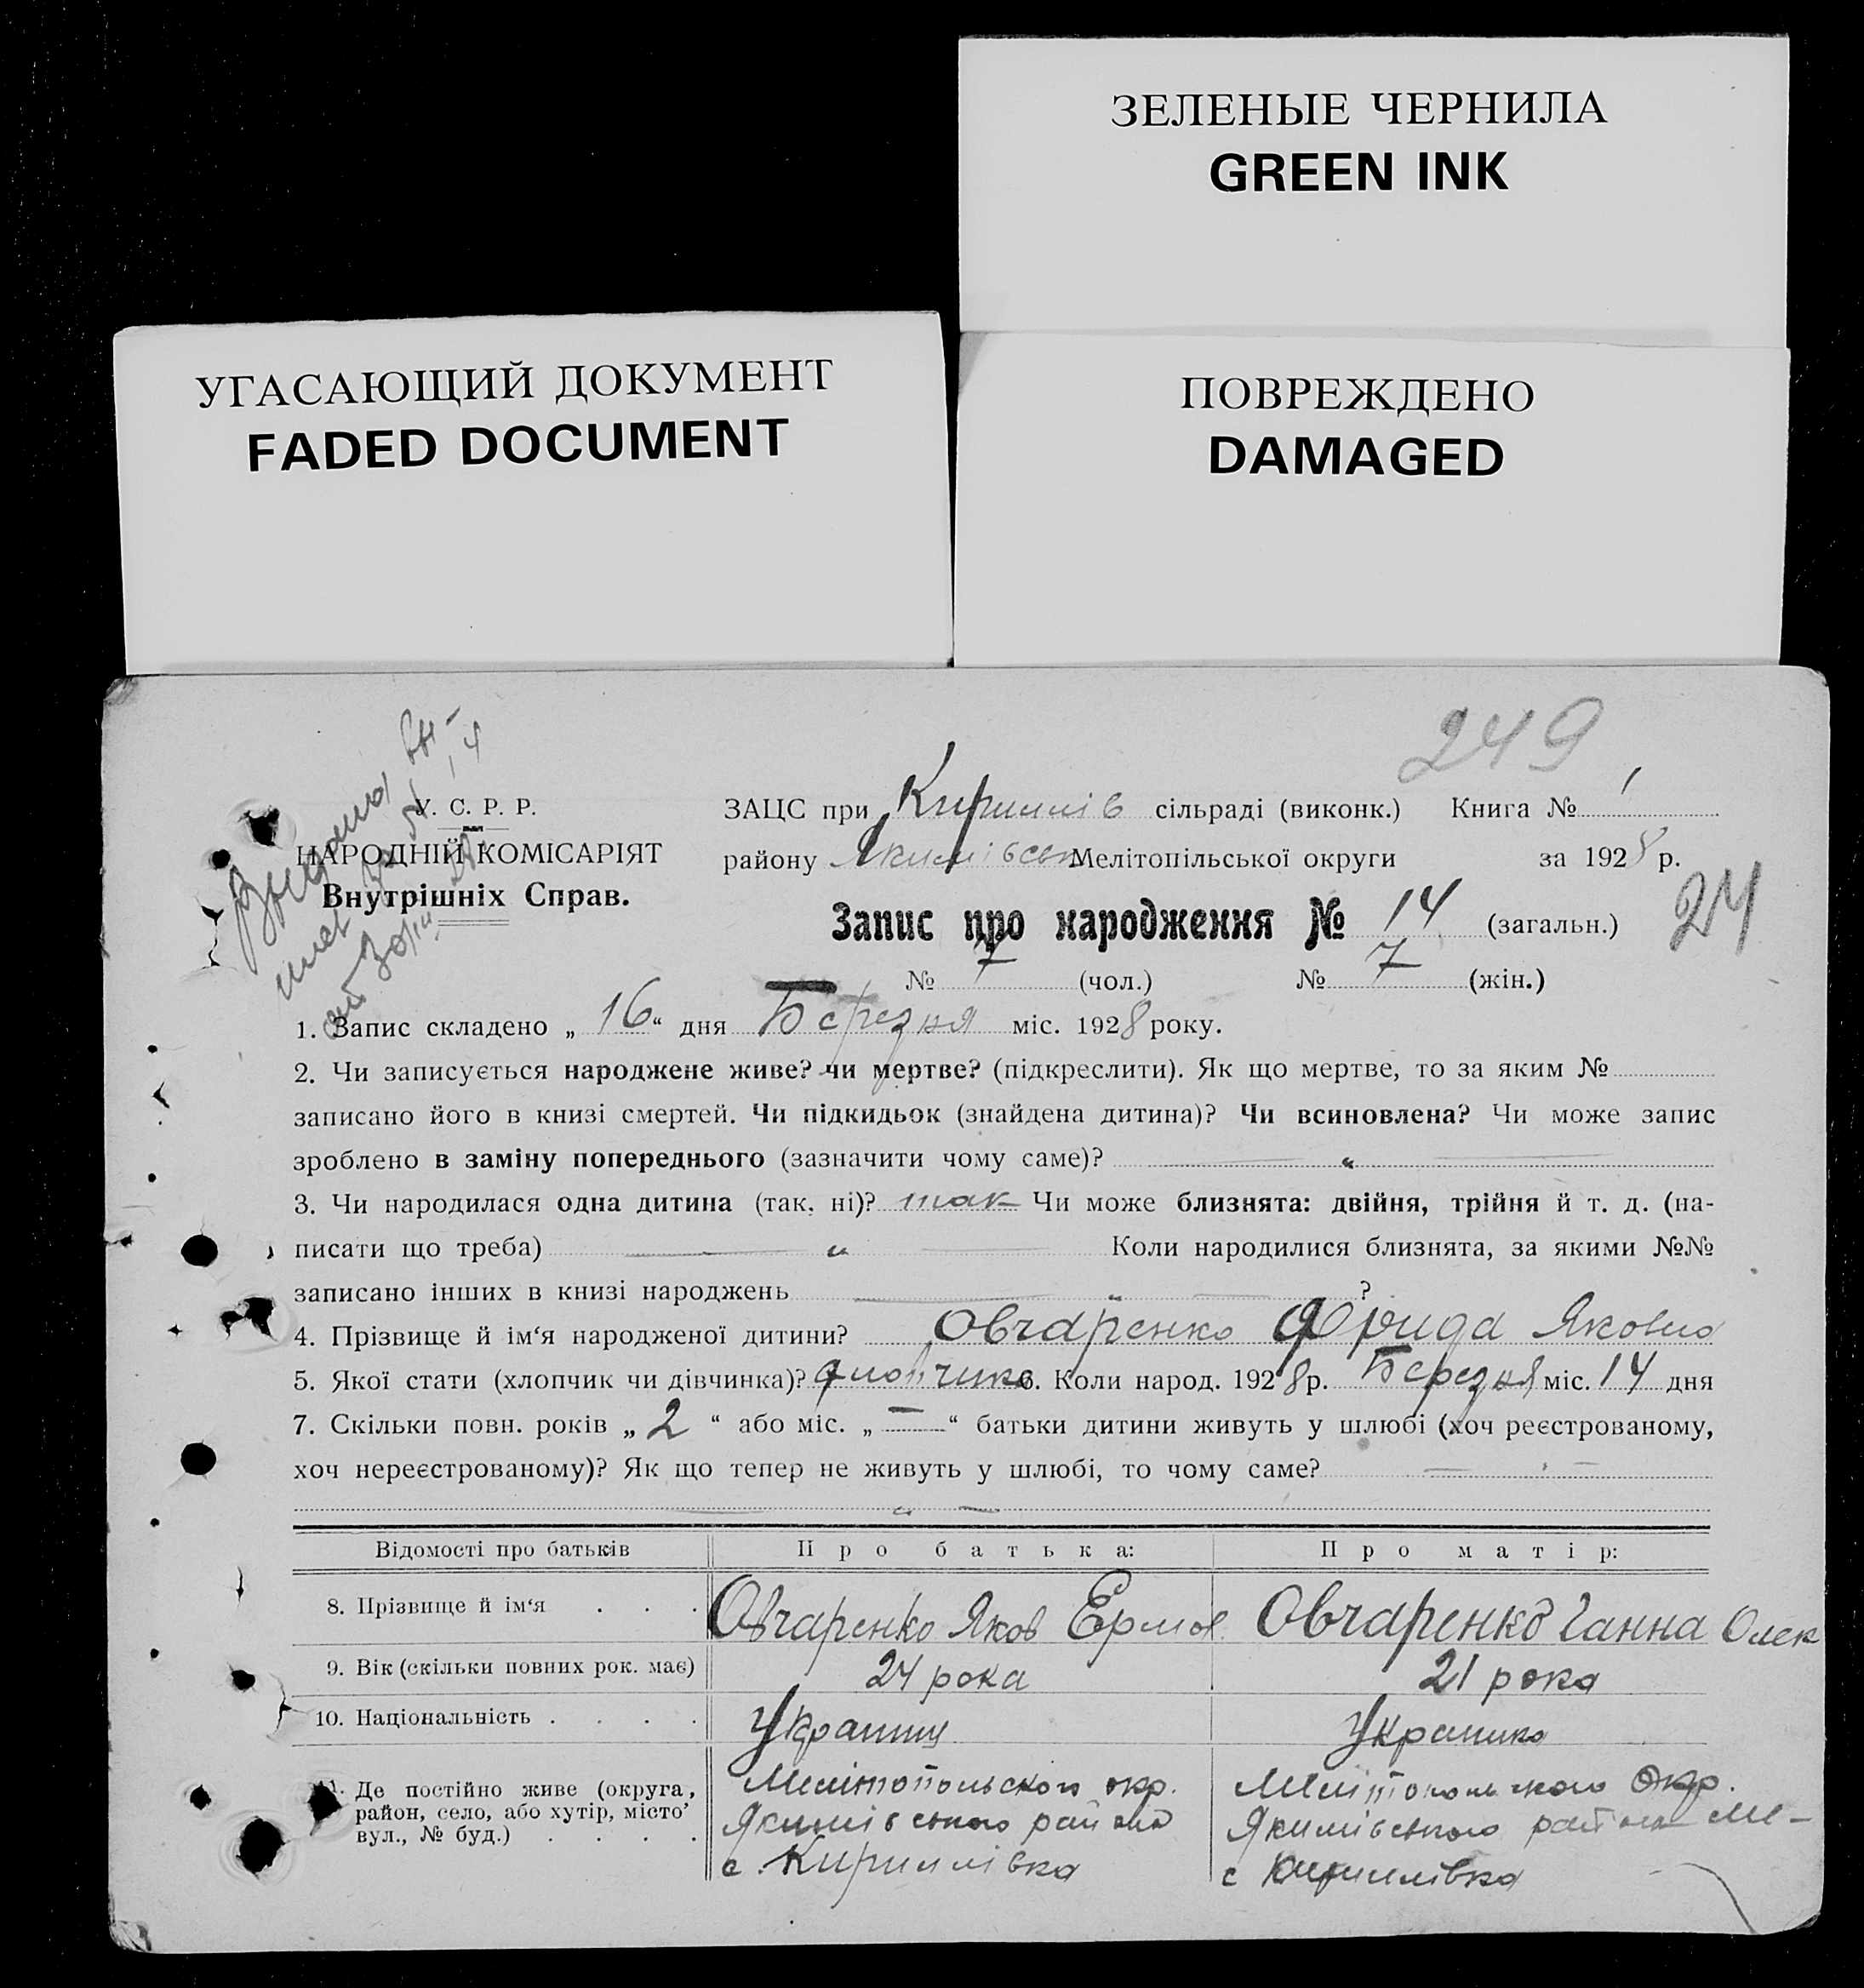 ЗЕЛЕНЫЕ ЧЕРНИЛА
GREEN INK
УГАСАЮЩИЙ ДОКУМЕНТ
FADED DOCUMENT
ПОВРЕЖДЕНО
DAMAGED
249
У. С. Р. Р.
НАРОДНІЙ КОМІСАРІЯТ
Внутрішніх Справ.
ЗАЦС при Кириллів сільраді (виконк.) Книга № 1
району Якимівськ Мелітопільської округи за 1928 р.
24
Запис про народження № 14 (загальн.)
№ 7 (чол.) № 7 (жін.)
1. Запис складено „ 16 “ дня Березня міс. 1928 року.
2. Чи записується народжене живе? чи мертве? (підкреслити). Як що мертве, то за яким №
записано його в книзі смертей. Чи підкидьок (знайдена дитина)? Чи всиновлена? Чи може запис
зроблено в заміну попереднього (зазначити чому саме)? — „ —
3. Чи народилася одна дитина (так, ні)? так Чи може близнята: двійня, трійня й т. д. (на-
писати що треба) — „ — Коли народилися близнята, за якими №№
записано інших в книзі народжень — „ — ?
4. Прізвище й ім‘я народженої дитини? Овчаренко Фрида Яковна
5. Якої стати (хлопчик чи дівчинка)? 6. Коли народ. 1928 р. Березня міс. 14 дня
7. Скільки повн. років „ 2 “ або міс. „ — “ батьки дитини живуть у шлюбі (хоч реєстрованому,
хоч нереєстрованому)? Як що тепер не живуть у шлюбі, то чому саме? —
— „ —
Відомості про батьків Про батька: Про матір:
8. Прізвище й ім‘я . . . Овчаренко Яков Ермол. Овчаренко Ганна Олек
9. Вік (скільки повних рок. має) 24 рока 21 рока
10. Національність . . . . Украинц Украинка
11. Де постійно живе (округа, Мелітопольского окр. Мелітопольского Окр.
район, село, або хутір, місто’ Якимівського района Якимівського района
вул., № буд.) . . . . с. Кириллівка с Кириллівка